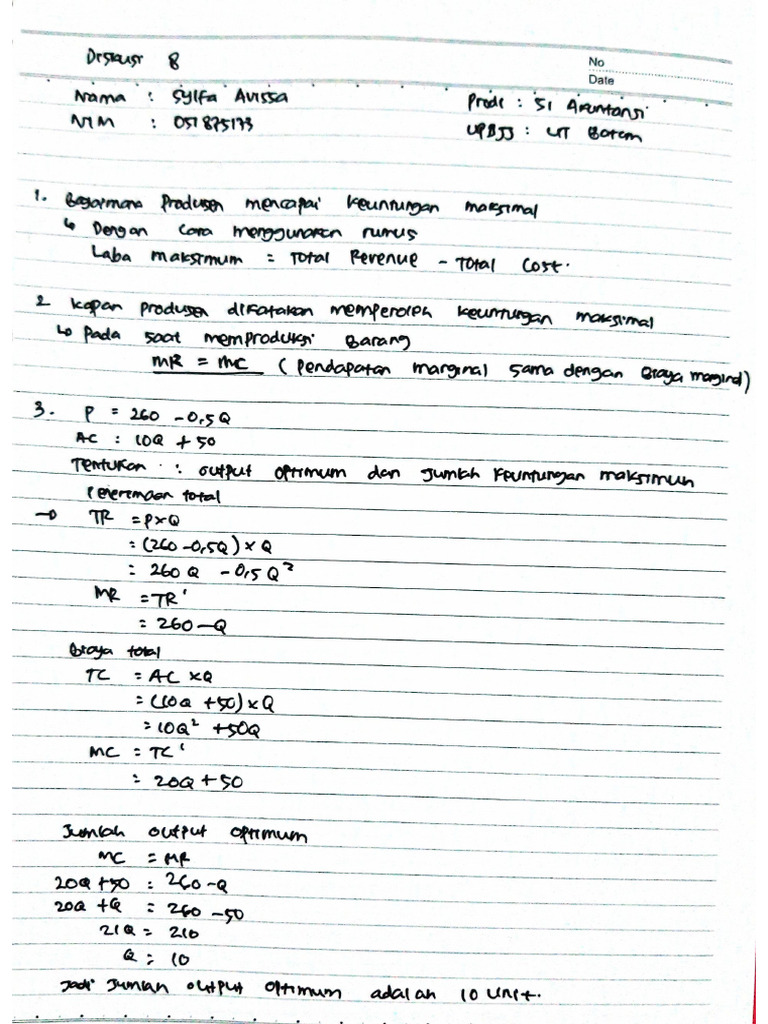 Diskusi 8
No
Date
Nama : Sylfa Avissa
Prodi : S1 Akuntansi
NIM : 051875173
UPBJJ : UT Batam
1. Bagaimana Produsen mencapai keuntungan maksimal
↳ Dengan cara menggunakan rumus
Laba maksimum = Total Revenue - Total Cost.
2 Kapan Produsen dikatakan memperoleh keuntungan maksimal
↳ Pada saat memproduksi Barang
MR = MC (Pendapatan marginal sama dengan Biaya marginal)
3. P = 260 - 0,5Q
AC : 10Q + 50
Tentukan : output optimum dan Jumlah keuntungan maksimum
Penerimaan total
→ TR = P×Q
= (260 - 0,5Q) × Q
= 260 Q - 0,5 Q²
MR = TR'
= 260 - Q
Biaya total
TC = AC × Q
= (10Q + 50) × Q
= 10Q² + 50Q
MC = TC'
= 20Q + 50
Jumlah output optimum
MC = MR
20Q + 50 = 260 - Q
20Q + Q = 260 - 50
21Q = 210
Q = 10
Jadi Jumlah output optimum adalah 10 unit.